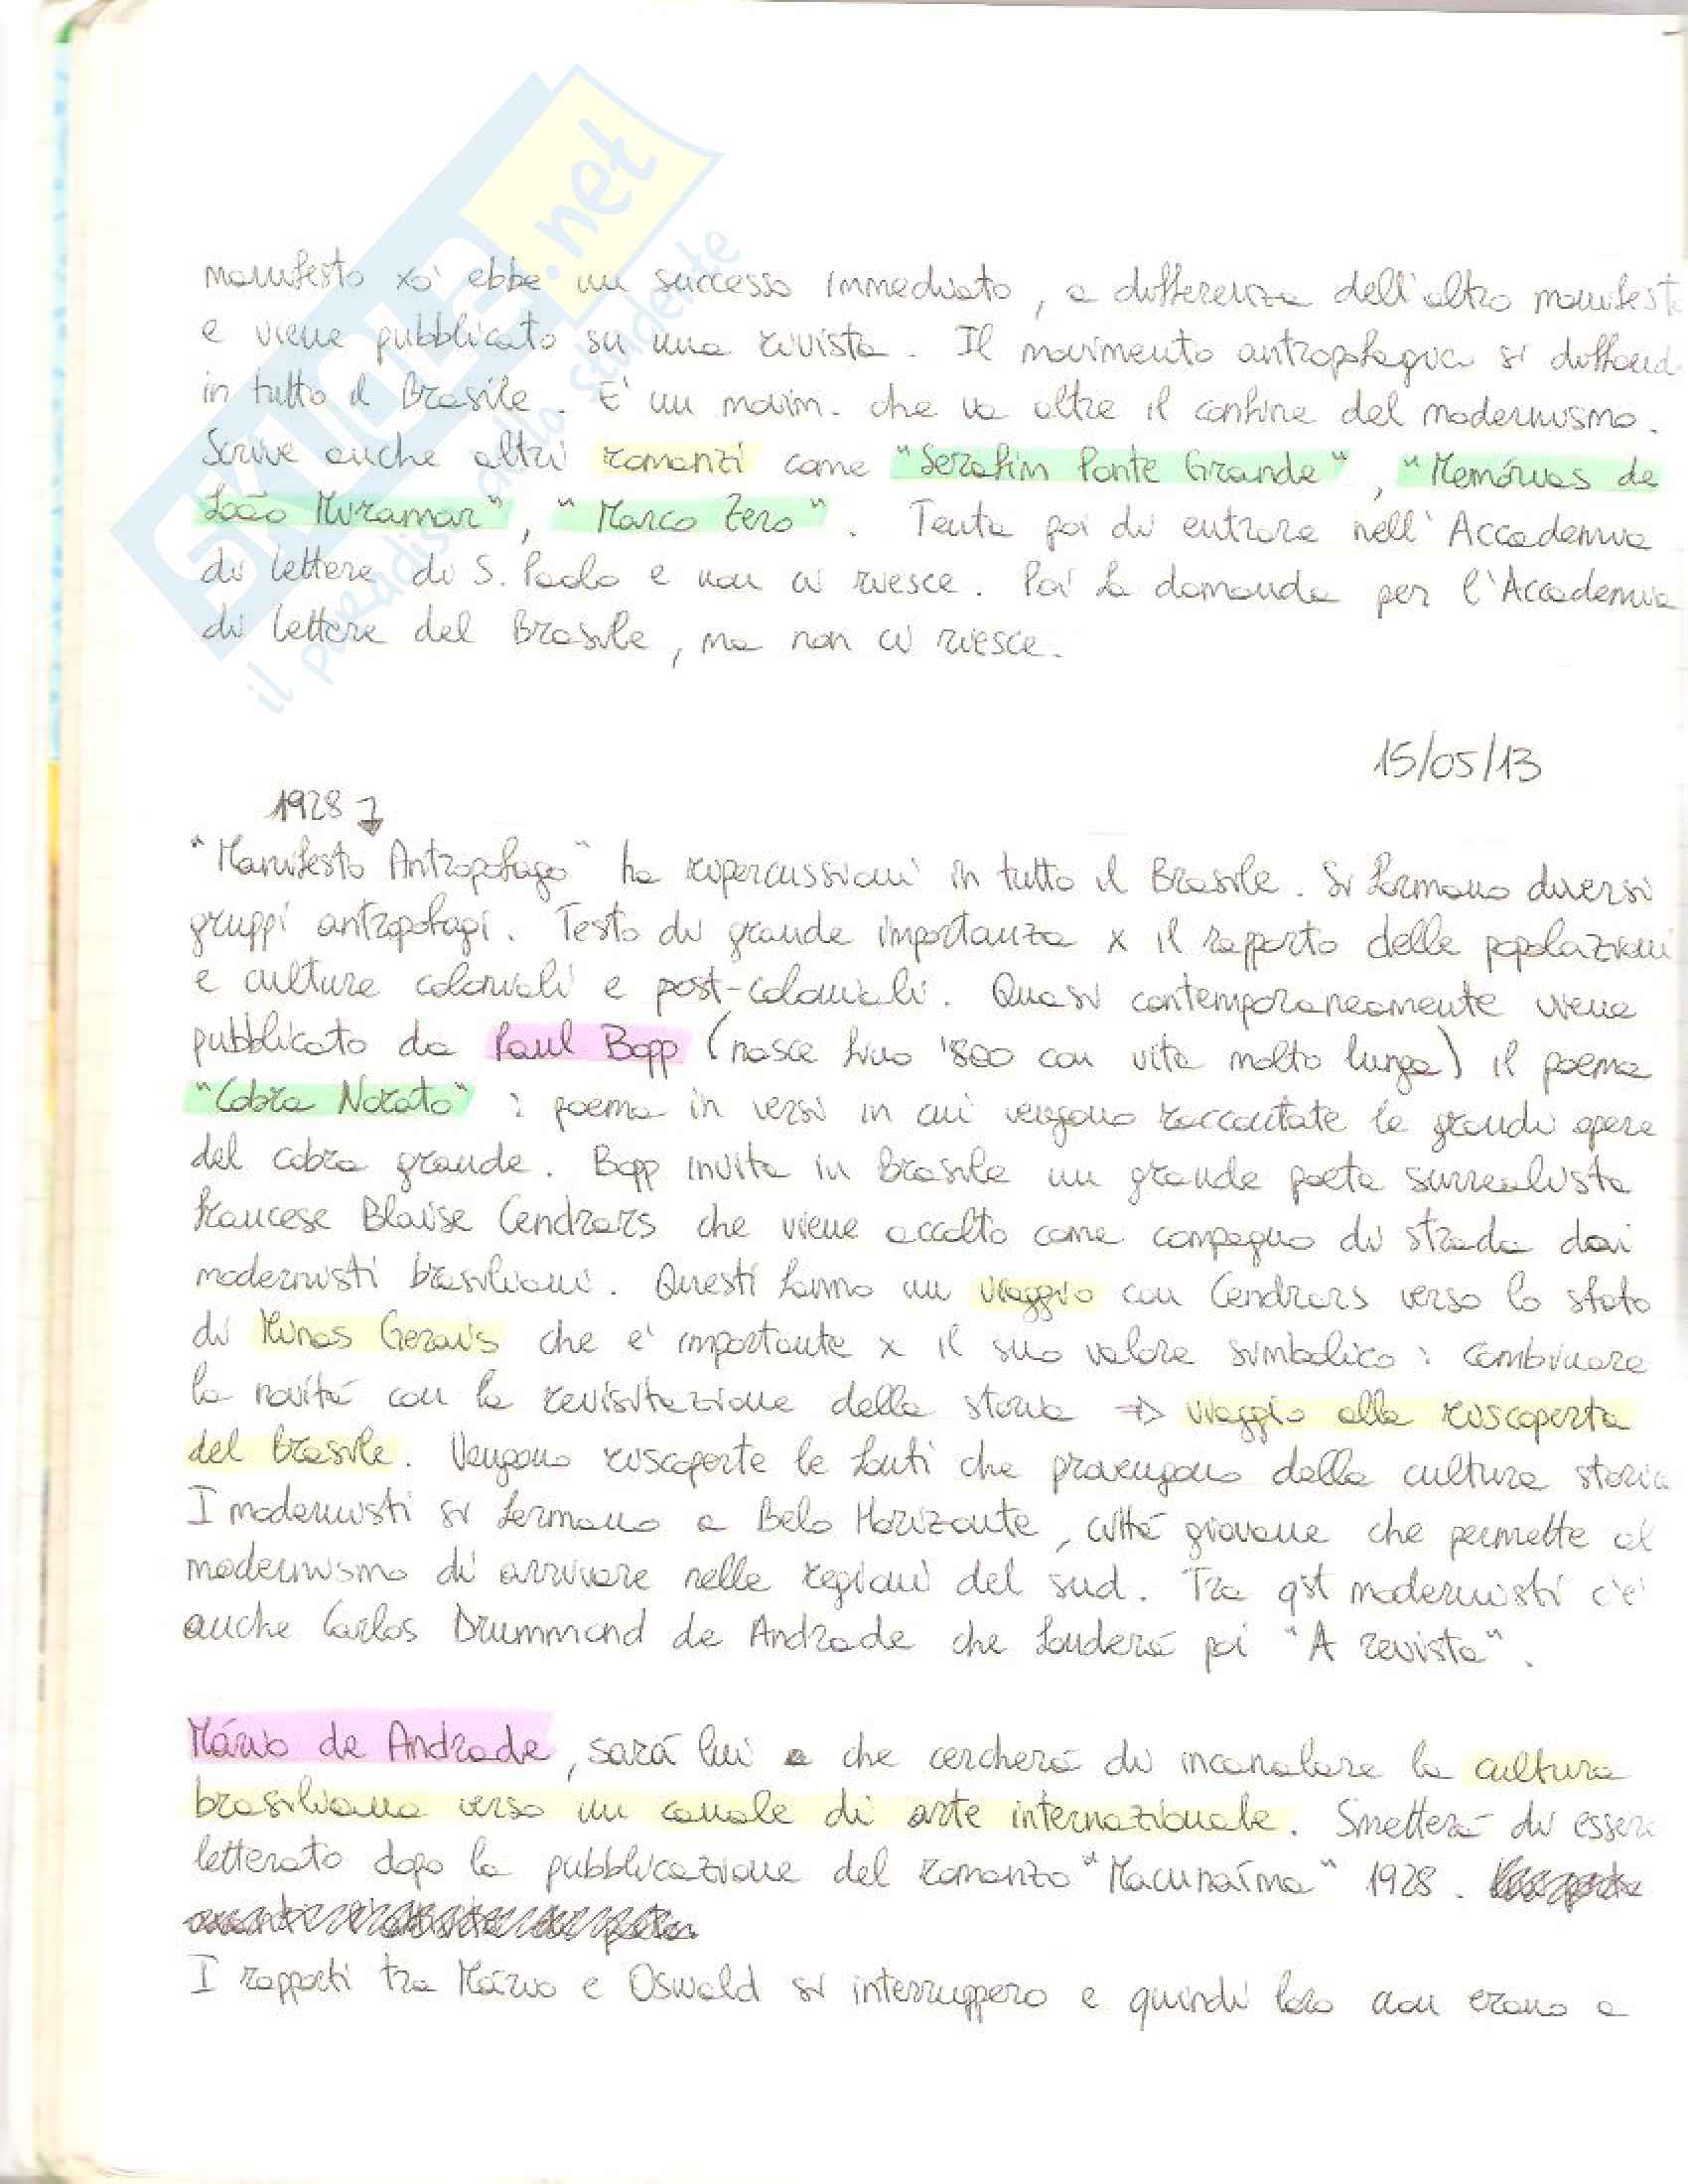 SKUOLA.net
il paradiso dello studente
manifesto xò ebbe un successo immediato, a differenza dell'altro manifest
e viene pubblicato su una rivista. Il movimento antropofagico si diffond
in tutto il Brasile. E' un movim. che va oltre il confine del modernismo.
Scrive anche altri romanzi come "Serafim Ponte Grande", "Memórias de
João Miramar", "Marco Zero". Tenta poi di entrare nell'Accademia
di lettere di S. Paolo e non ci riesce. Poi fa domanda per l'Accademia
di lettere del Brasile, ma non ci riesce.
15/05/13
1928
"Manifesto Antropofago" ha ripercussioni in tutto il Brasile. Si formano diversi
gruppi antropofagi. Testo di grande importanza x il rapporto delle popolazioni
e culture coloniali e post-coloniali. Quasi contemporaneamente viene
pubblicato da Paul Bopp (nasce fine '800 con vita molto lunga) il poema
"Cobra Norato": poema in versi in cui vengono raccontate le grandi opere
del cobra grande. Bopp invita in Brasile un grande poeta surrealista
francese Blaise Cendrars che viene accolto come compagno di strada dai
modernisti brasiliani. Questi fanno un viaggio con Cendrars verso lo stato
di Minas Gerais che è importante x il suo valore simbolico: combinare
la novità con la revisitazione della storia => viaggio alla riscoperta
del Brasile. Vengono riscoperte le fonti che provengono dalla cultura storica
I modernisti si fermano a Belo Horizonte, città giovane che permette al
modernismo di arrivare nelle regioni del sud. Tra qst modernisti c'è
anche Carlos Drummond de Andrade che fonderà poi "A revista".
Mário de Andrade, sarà lui che cercherà di incanalare la cultura
brasiliana verso un canale di arte internazionale. Smetterà di essere
letterato dopo la pubblicazione del romanzo "Macunaíma" 1928.
I rapporti tra Mário e Oswald si interruppero e quindi loro non erano a